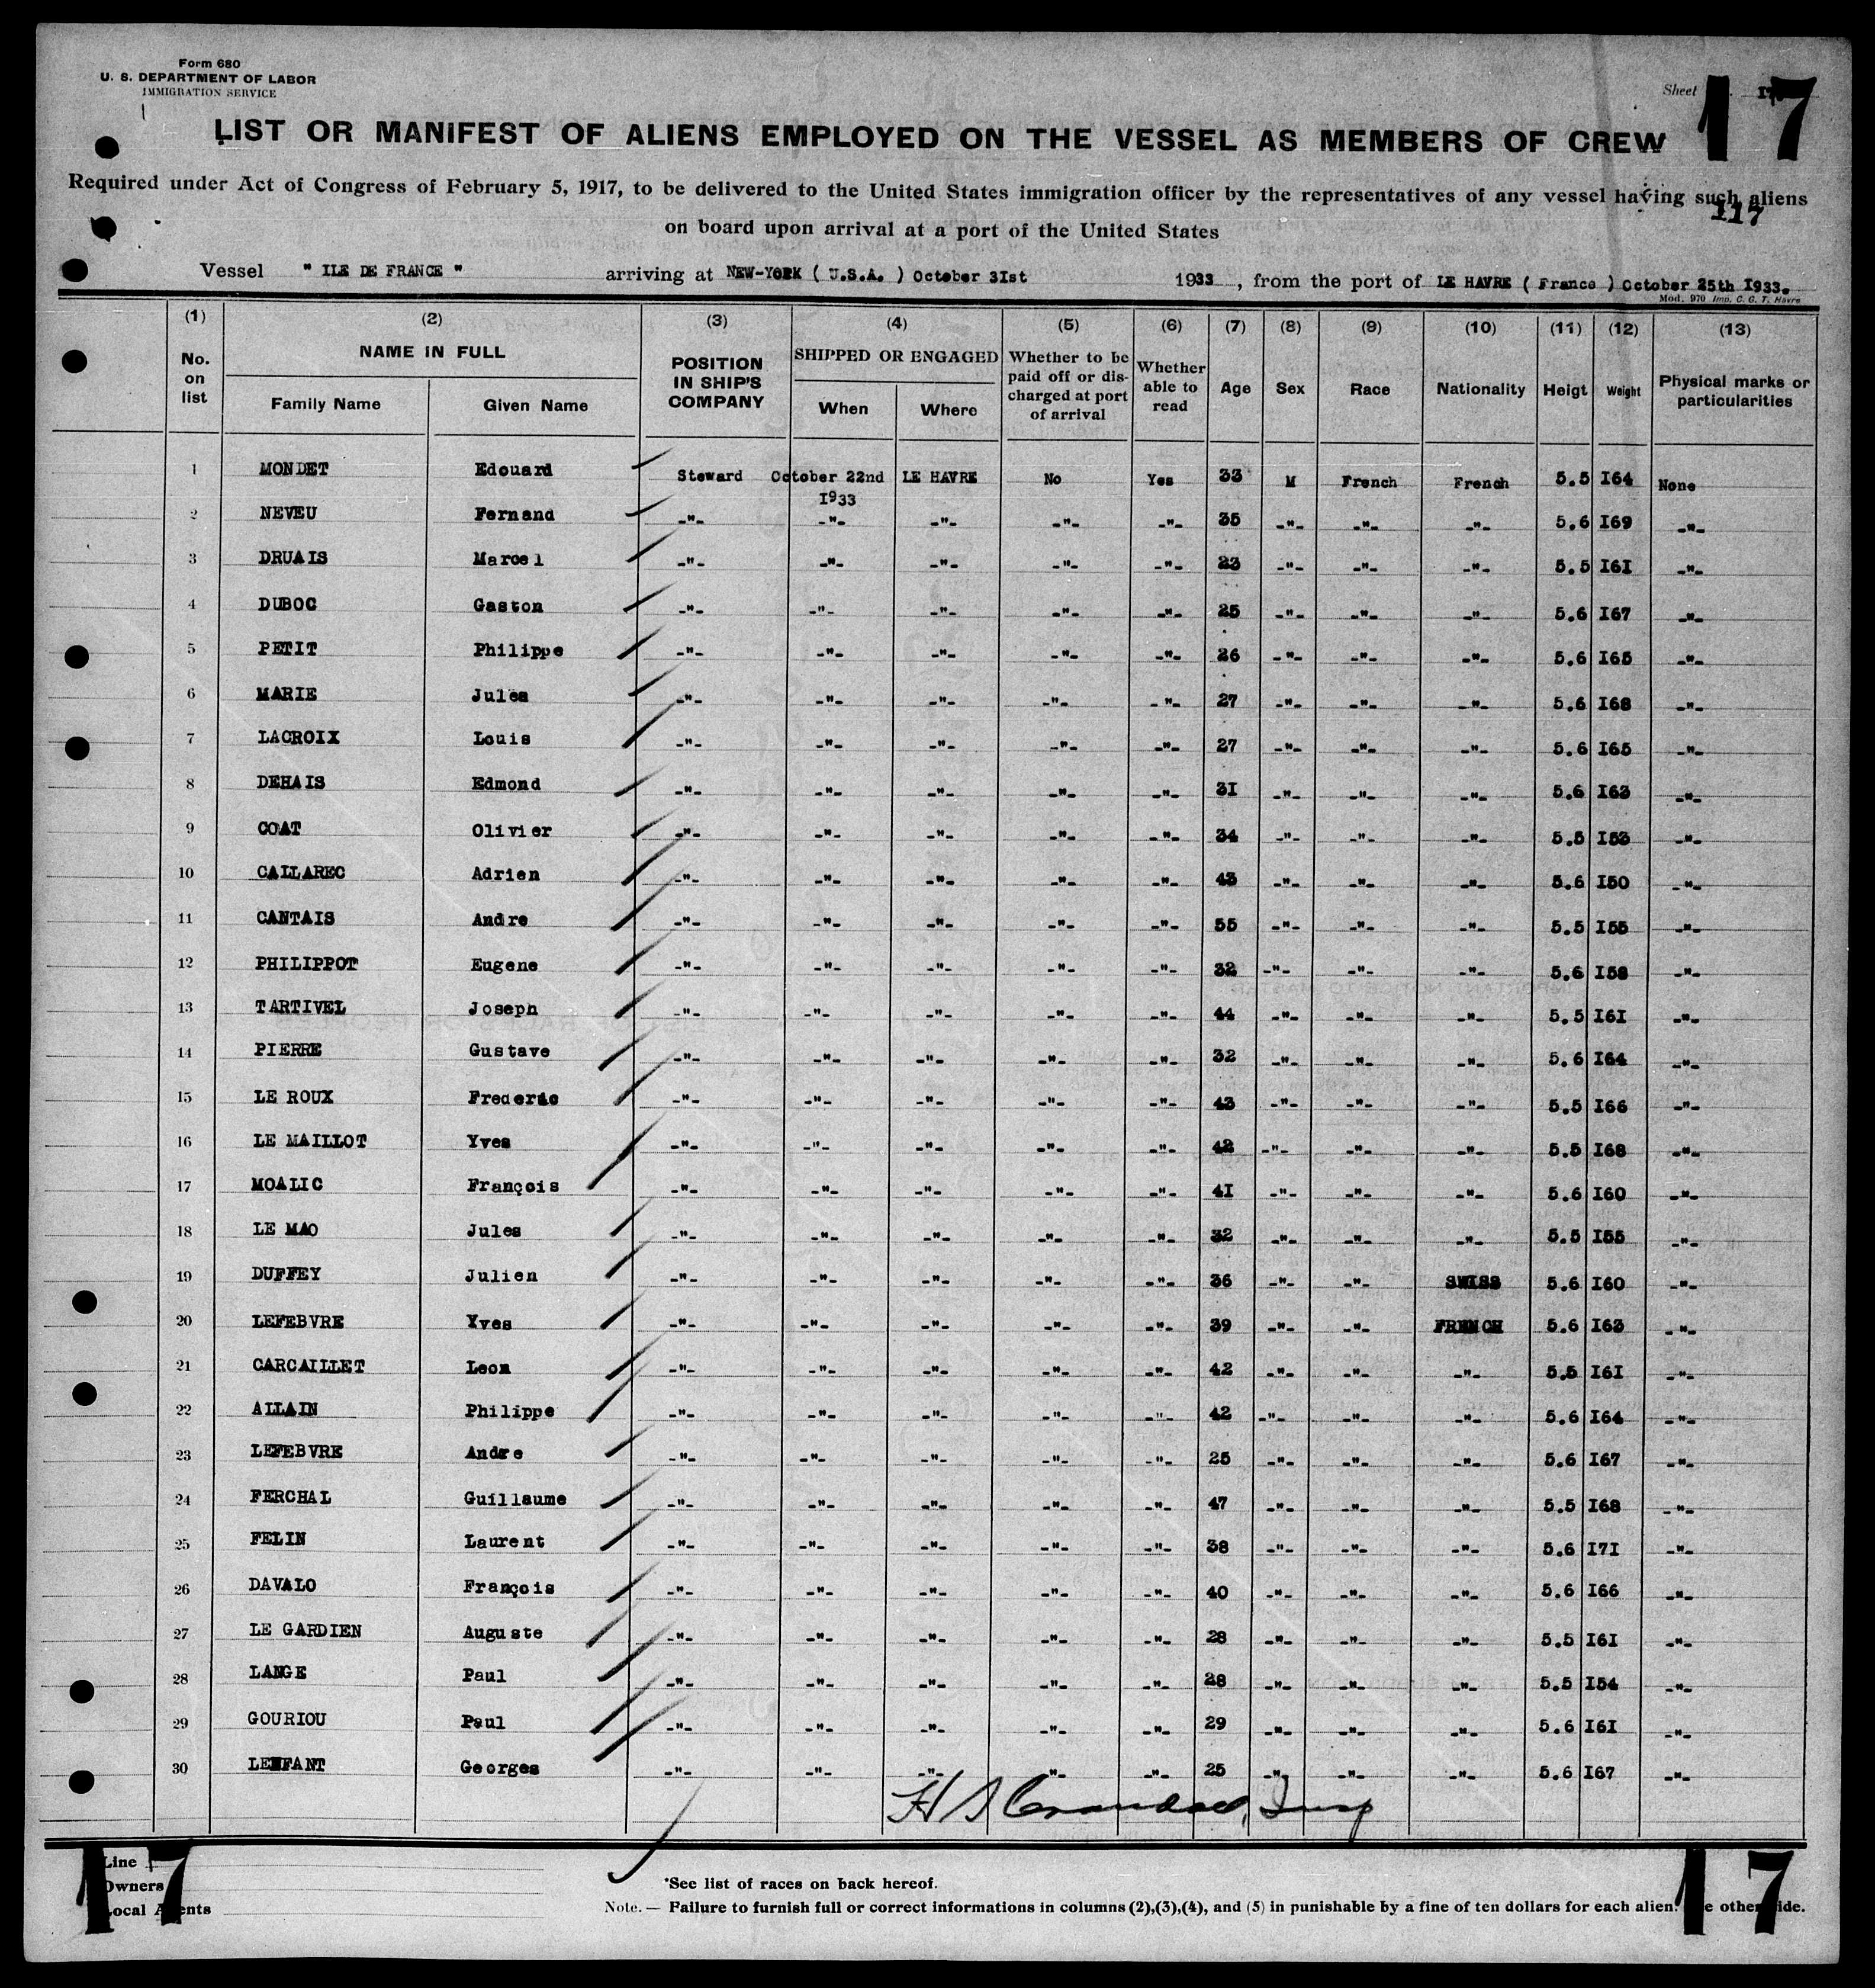 Form 680
U. S. DEPARTMENT OF LABOR
IMMIGRATION SERVICE
Sheet 17
17
LIST OR MANIFEST OF ALIENS EMPLOYED ON THE VESSEL AS MEMBERS OF CREW
Required under Act of Congress of February 5, 1917, to be delivered to the United States immigration officer by the representatives of any vessel having such aliens
117
on board upon arrival at a port of the United States
Vessel " ILE DE FRANCE " arriving at NEW-YORK ( U.S.A. ) October 3Ist 1933 , from the port of LE HAVRE ( France ) October 25th I933.
Mod. 970 Imp. C. G. T. Havre
(1) (2) (3) (4) (5) (6) (7) (8) (9) (10) (11) (12) (13)
No. on list NAME IN FULL Family Name Given Name POSITION IN SHIP'S COMPANY SHIPPED OR ENGAGED When Where Whether to be paid off or discharged at port of arrival Whether able to read Age Sex Race Nationality Heigt Weight Physical marks or particularities
1 MONDET Edouard Steward October 22nd I933 LE HAVRE No Yes 33 M French French 5.5 I64 None
2 NEVEU Fernand -"- -"- -"- -"- -"- 35 -"- -"- -"- 5.6 I69 -"-
3 DRUAIS Marcel -"- -"- -"- -"- -"- 23 -"- -"- -"- 5.5 I6I -"-
4 DUBOC Gaston -"- -"- -"- -"- -"- 25 -"- -"- -"- 5.6 I67 -"-
5 PETIT Philippe -"- -"- -"- -"- -"- 26 -"- -"- -"- 5.6 I65 -"-
6 MARIE Jules -"- -"- -"- -"- -"- 27 -"- -"- -"- 5.6 I68 -"-
7 LACROIX Louis -"- -"- -"- -"- -"- 27 -"- -"- -"- 5.6 I65 -"-
8 DEHAIS Edmond -"- -"- -"- -"- -"- 3I -"- -"- -"- 5.6 I63 -"-
9 COAT Olivier -"- -"- -"- -"- -"- 34 -"- -"- -"- 5.5 I53 -"-
10 CALLAREC Adrien -"- -"- -"- -"- -"- 43 -"- -"- -"- 5.6 I50 -"-
11 CANTAIS Andre -"- -"- -"- -"- -"- 55 -"- -"- -"- 5.5 I55 -"-
12 PHILIPPOT Eugene -"- -"- -"- -"- -"- 32 -"- -"- -"- 5.6 I58 -"-
13 TARTIVEL Joseph -"- -"- -"- -"- -"- 44 -"- -"- -"- 5.5 I6I -"-
14 PIERRE Gustave -"- -"- -"- -"- -"- 32 -"- -"- -"- 5.6 I64 -"-
15 LE ROUX Frederic -"- -"- -"- -"- -"- 43 -"- -"- -"- 5.5 I66 -"-
16 LE MAILLOT Yves -"- -"- -"- -"- -"- 42 -"- -"- -"- 5.5 I68 -"-
17 MOALIC François -"- -"- -"- -"- -"- 4I -"- -"- -"- 5.6 I60 -"-
18 LE MAO Jules -"- -"- -"- -"- -"- 32 -"- -"- -"- 5.5 I55 -"-
19 DUFFEY Julien -"- -"- -"- -"- -"- 36 -"- -"- SWISS 5.6 I60 -"-
20 LEFEBVRE Yves -"- -"- -"- -"- -"- 39 -"- -"- FRENCH 5.6 I63 -"-
21 CARCAILLET Leon -"- -"- -"- -"- -"- 42 -"- -"- -"- 5.5 I6I -"-
22 ALLAIN Philippe -"- -"- -"- -"- -"- 42 -"- -"- -"- 5.6 I64 -"-
23 LEFEBVRE Andre -"- -"- -"- -"- -"- 25 -"- -"- -"- 5.6 I67 -"-
24 FERCHAL Guillaume -"- -"- -"- -"- -"- 47 -"- -"- -"- 5.5 I68 -"-
25 FELIN Laurent -"- -"- -"- -"- -"- 38 -"- -"- -"- 5.6 I7I -"-
26 DAVALO François -"- -"- -"- -"- -"- 40 -"- -"- -"- 5.6 I66 -"-
27 LE GARDIEN Auguste -"- -"- -"- -"- -"- 28 -"- -"- -"- 5.5 I6I -"-
28 LANGE Paul -"- -"- -"- -"- -"- 28 -"- -"- -"- 5.5 I54 -"-
29 GOURIOU Paul -"- -"- -"- -"- -"- 29 -"- -"- -"- 5.6 I6I -"-
30 LENFANT Georges -"- -"- -"- -"- -"- 25 -"- -"- -"- 5.6 I67 -"-
H S Crandall, Insp
Line
Owners
Local Agents
17
*See list of races on back hereof.
Note. — Failure to furnish full or correct informations in columns (2),(3),(4), and (5) in punishable by a fine of ten dollars for each alien. See other side.
17